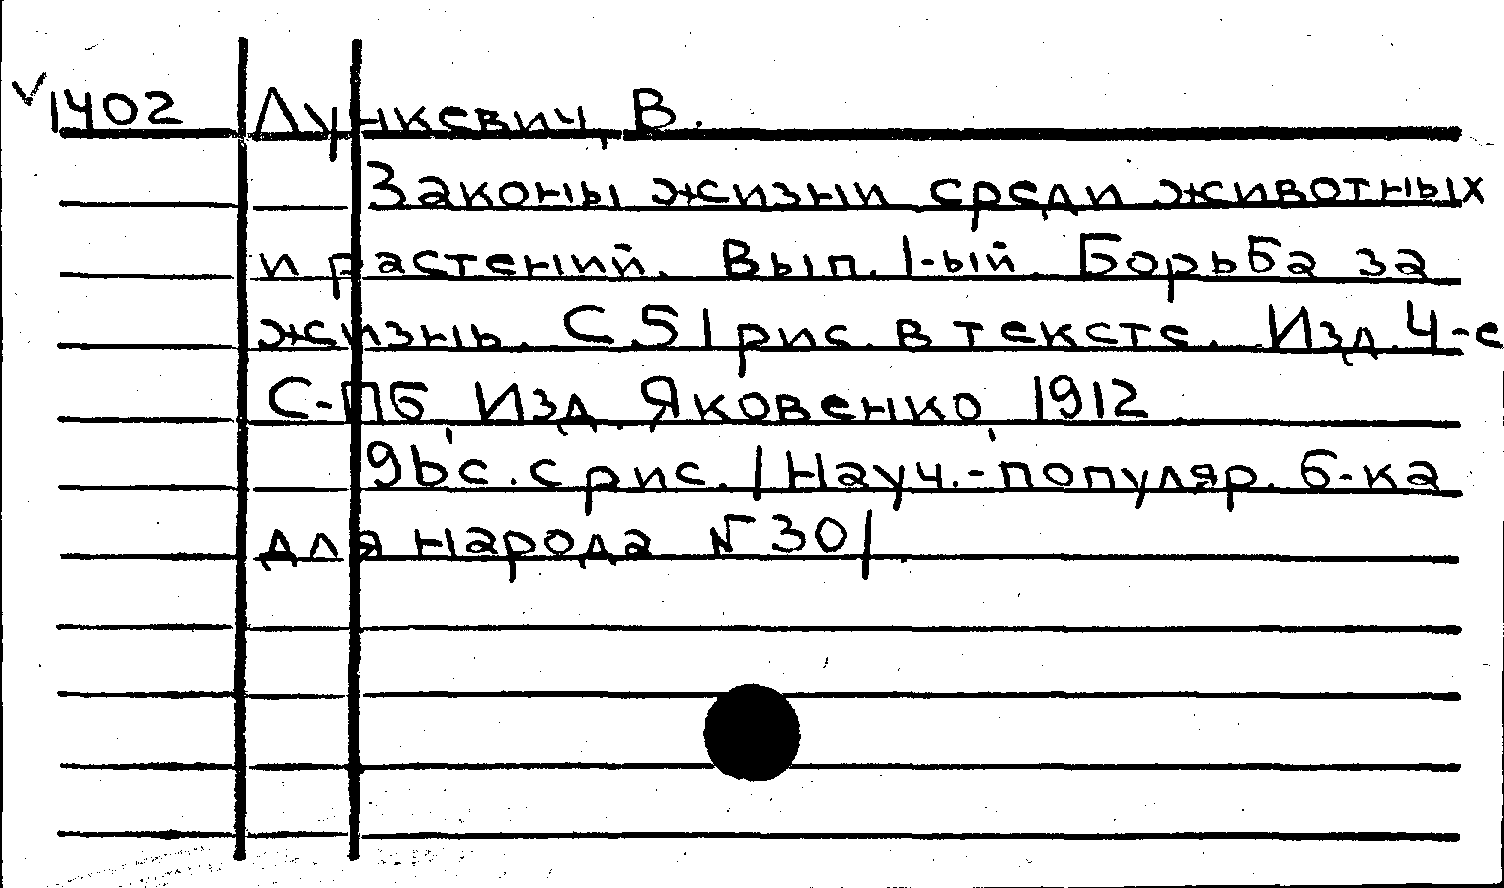 √1402 Лункевич, В.
Законы жизни среди животных
и растений. Вып. 1-ый. Борьба за
жизнь. С 51 рис. в тексте. Изд. 4-е
С-ПБ, Изд. Яковенко, 1912
96 с. с рис. /Науч.-популяр. б-ка
для народа № 30/